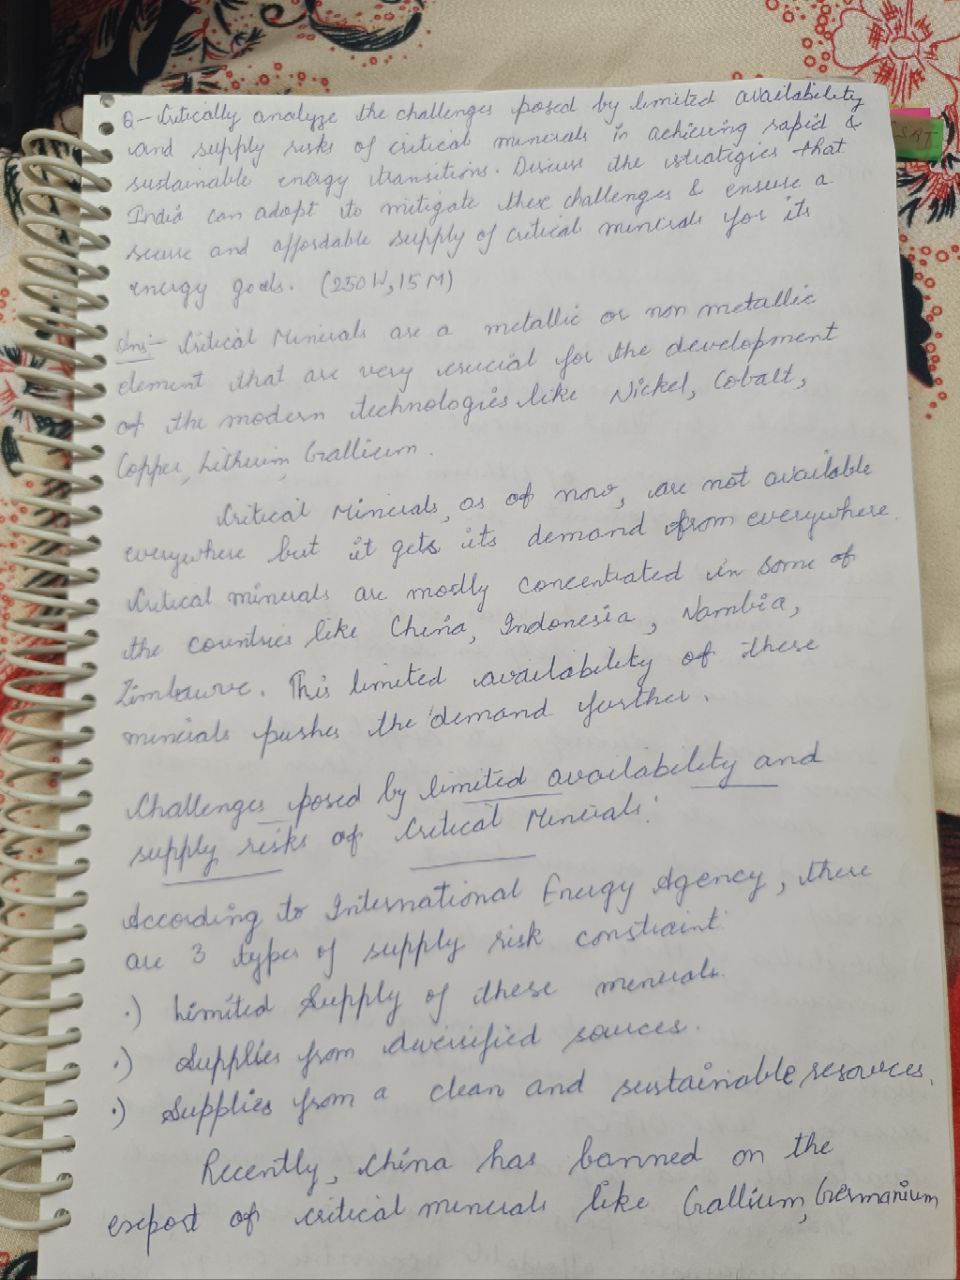 Q- Critically analyze the challenges posed by limited availability
and supply risks of critical minerals in achieving rapid &
sustainable energy transitions. Discuss the strategies that
India can adopt to mitigate these challenges & ensure a
secure and affordable supply of critical minerals for its
energy goals. (250 W, 15 M)
Ans:- Critical Minerals are a metallic or non metallic
element that are very crucial for the development
of the modern technologies like Nickel, Cobalt,
Copper, Litherium, Gallium.
Critical Minerals, as of now, are not available
everywhere but it gets its demand from everywhere.
Critical minerals are mostly concentrated in some of
the countries like China, Indonesia, Nambia,
Zimbawve. This limited availability of these
minerals pushes the demand further.
Challenges posed by limited availability and
supply risks of Critical Minerals:
According to International Energy Agency, there
are 3 types of supply risk constraint
·) Limited Supply of these minerals.
·) Supplies from diversified sources.
·) Supplies from a clean and sustainable resources.
Recently, China has banned on the
export of critical minerals like Gallium, Germanium